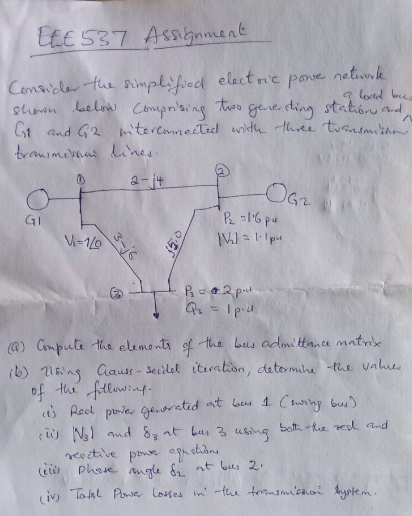 EEE 537 Assignment
Consider the simplified electric power network
a load bus
shown below comprising two generating station and
G1 and G2 interconnected with three transmission
transmission lines.
① ②
2-j4
G1 G2
P2 = 1.6 pu
V1 = 1∠0 3-j |V2| = 1.1 pu
③ P3 = 2 p.u
Q3 = 1 p.u
(a) Compute the elements of the bus admittance matrix
(b) Using Gauss-seidel iteration, determine the values
of the following.
(i) Real power generated at bus 1 (swing bus)
(ii) |V3| and δ3 at bus 3 using both the real and
reactive power equations
(iii) Phase angle δ2 at bus 2.
(iv) Total Power losses in the transmission system.